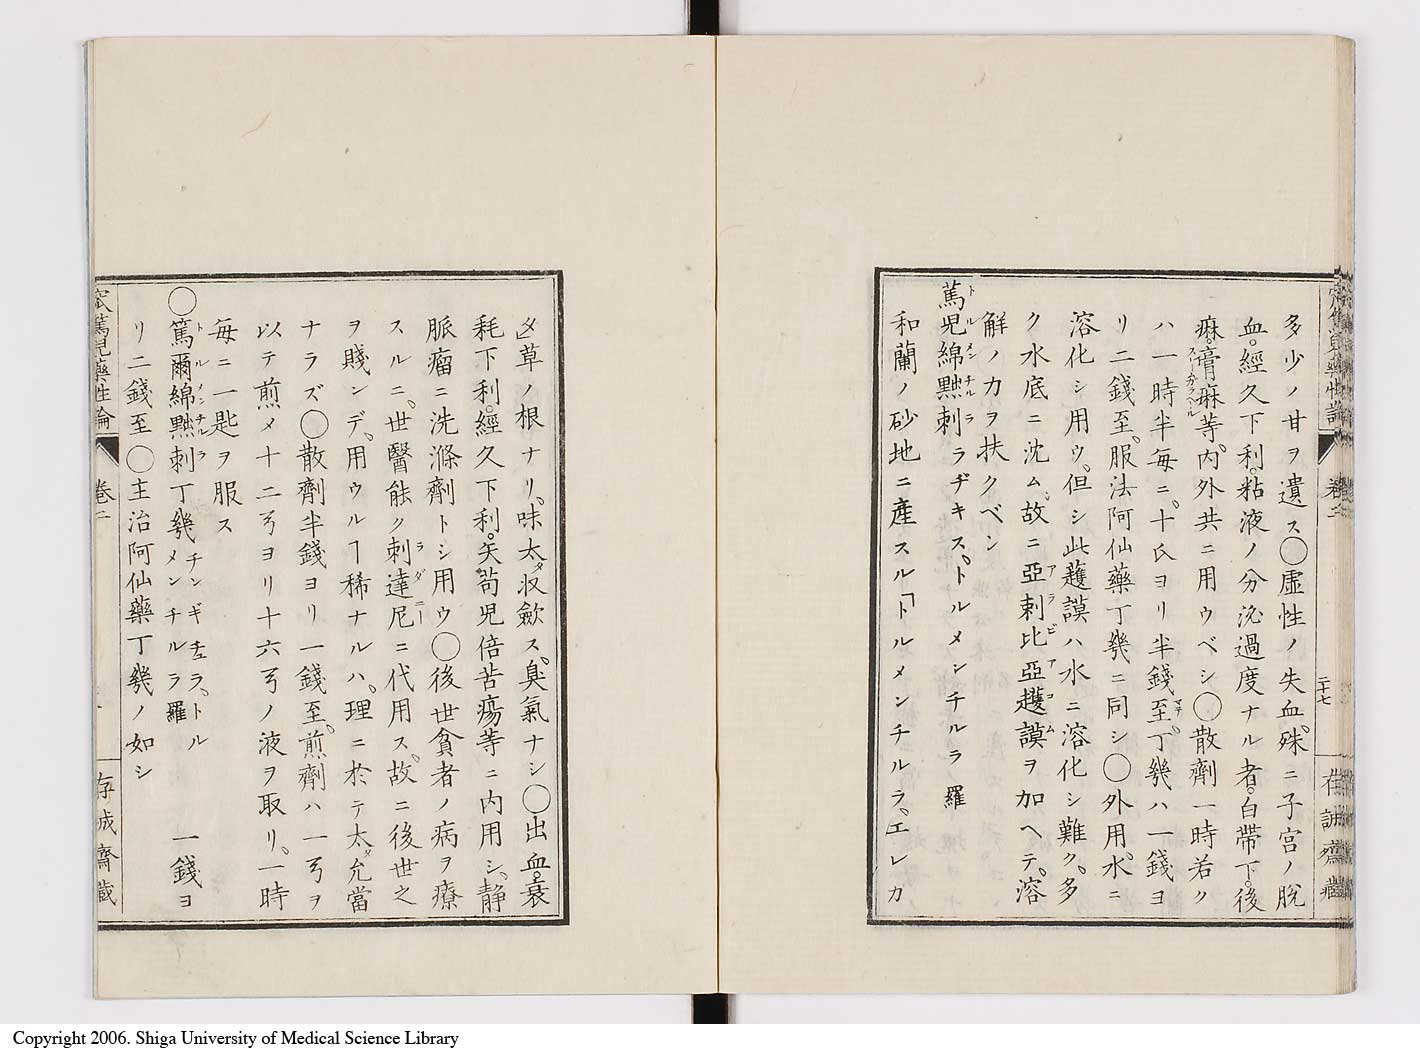 多少ノ甘ヲ遺ス◯虚性ノ失血。殊ニ子宮ノ脱
血。經久下利。粘液ノ分泌過度ナル者。白帯下。後
麻。膏麻等。内外共ニ用ウベシ◯散劑一時若ク
ハ一時半毎ニ。十氏ヨリ半錢至。丁幾ハ一錢ヨ
リ二錢至。服法阿仙藥丁幾ニ同シ◯外用水ニ
溶化シ用ウ。但シ此護謨ハ水ニ溶化シ難ク。多
ク水底ニ沈ム。故ニ亞剌比亞護謨ヲ加ヘテ。溶
解ノ力ヲ扶クベシ
篤児綿黙刺 ラヂキス。トルメンチルラ 羅
和蘭ノ砂地ニ産スル「トルメンチルラ。エレカ
卷二
二十七
存誠齋藏
凶草ノ根ナリ。味太タ収斂ス。臭氣ナシ◯出血。衰
耗下利。經久下利。失苟児倍苦瘍等ニ内用シ。静
脈瘤ニ洗滌劑トシ用ウ◯後世貧者ノ病ヲ療
スルニ。世醫能ク刺達尼ニ代用ス。故ニ後世之
ヲ賤ンデ。用ウルヿ稀ナルハ。理ニ於テ太タ允當
ナラズ◯散劑半錢ヨリ一錢至。煎劑ハ一弓ヲ
以テ煎メ十二弓ヨリ十六弓ノ液ヲ取リ。一時
毎ニ一匙ヲ服ス
◯篤爾綿黙刺丁幾 チンギチュラ。トルメンチルラ 羅 一錢ヨ
リ二錢至◯主治阿仙藥丁幾ノ如シ
篤児藥性論
卷二
存誠齋藏
Copyright 2006. Shiga University of Medical Science Library